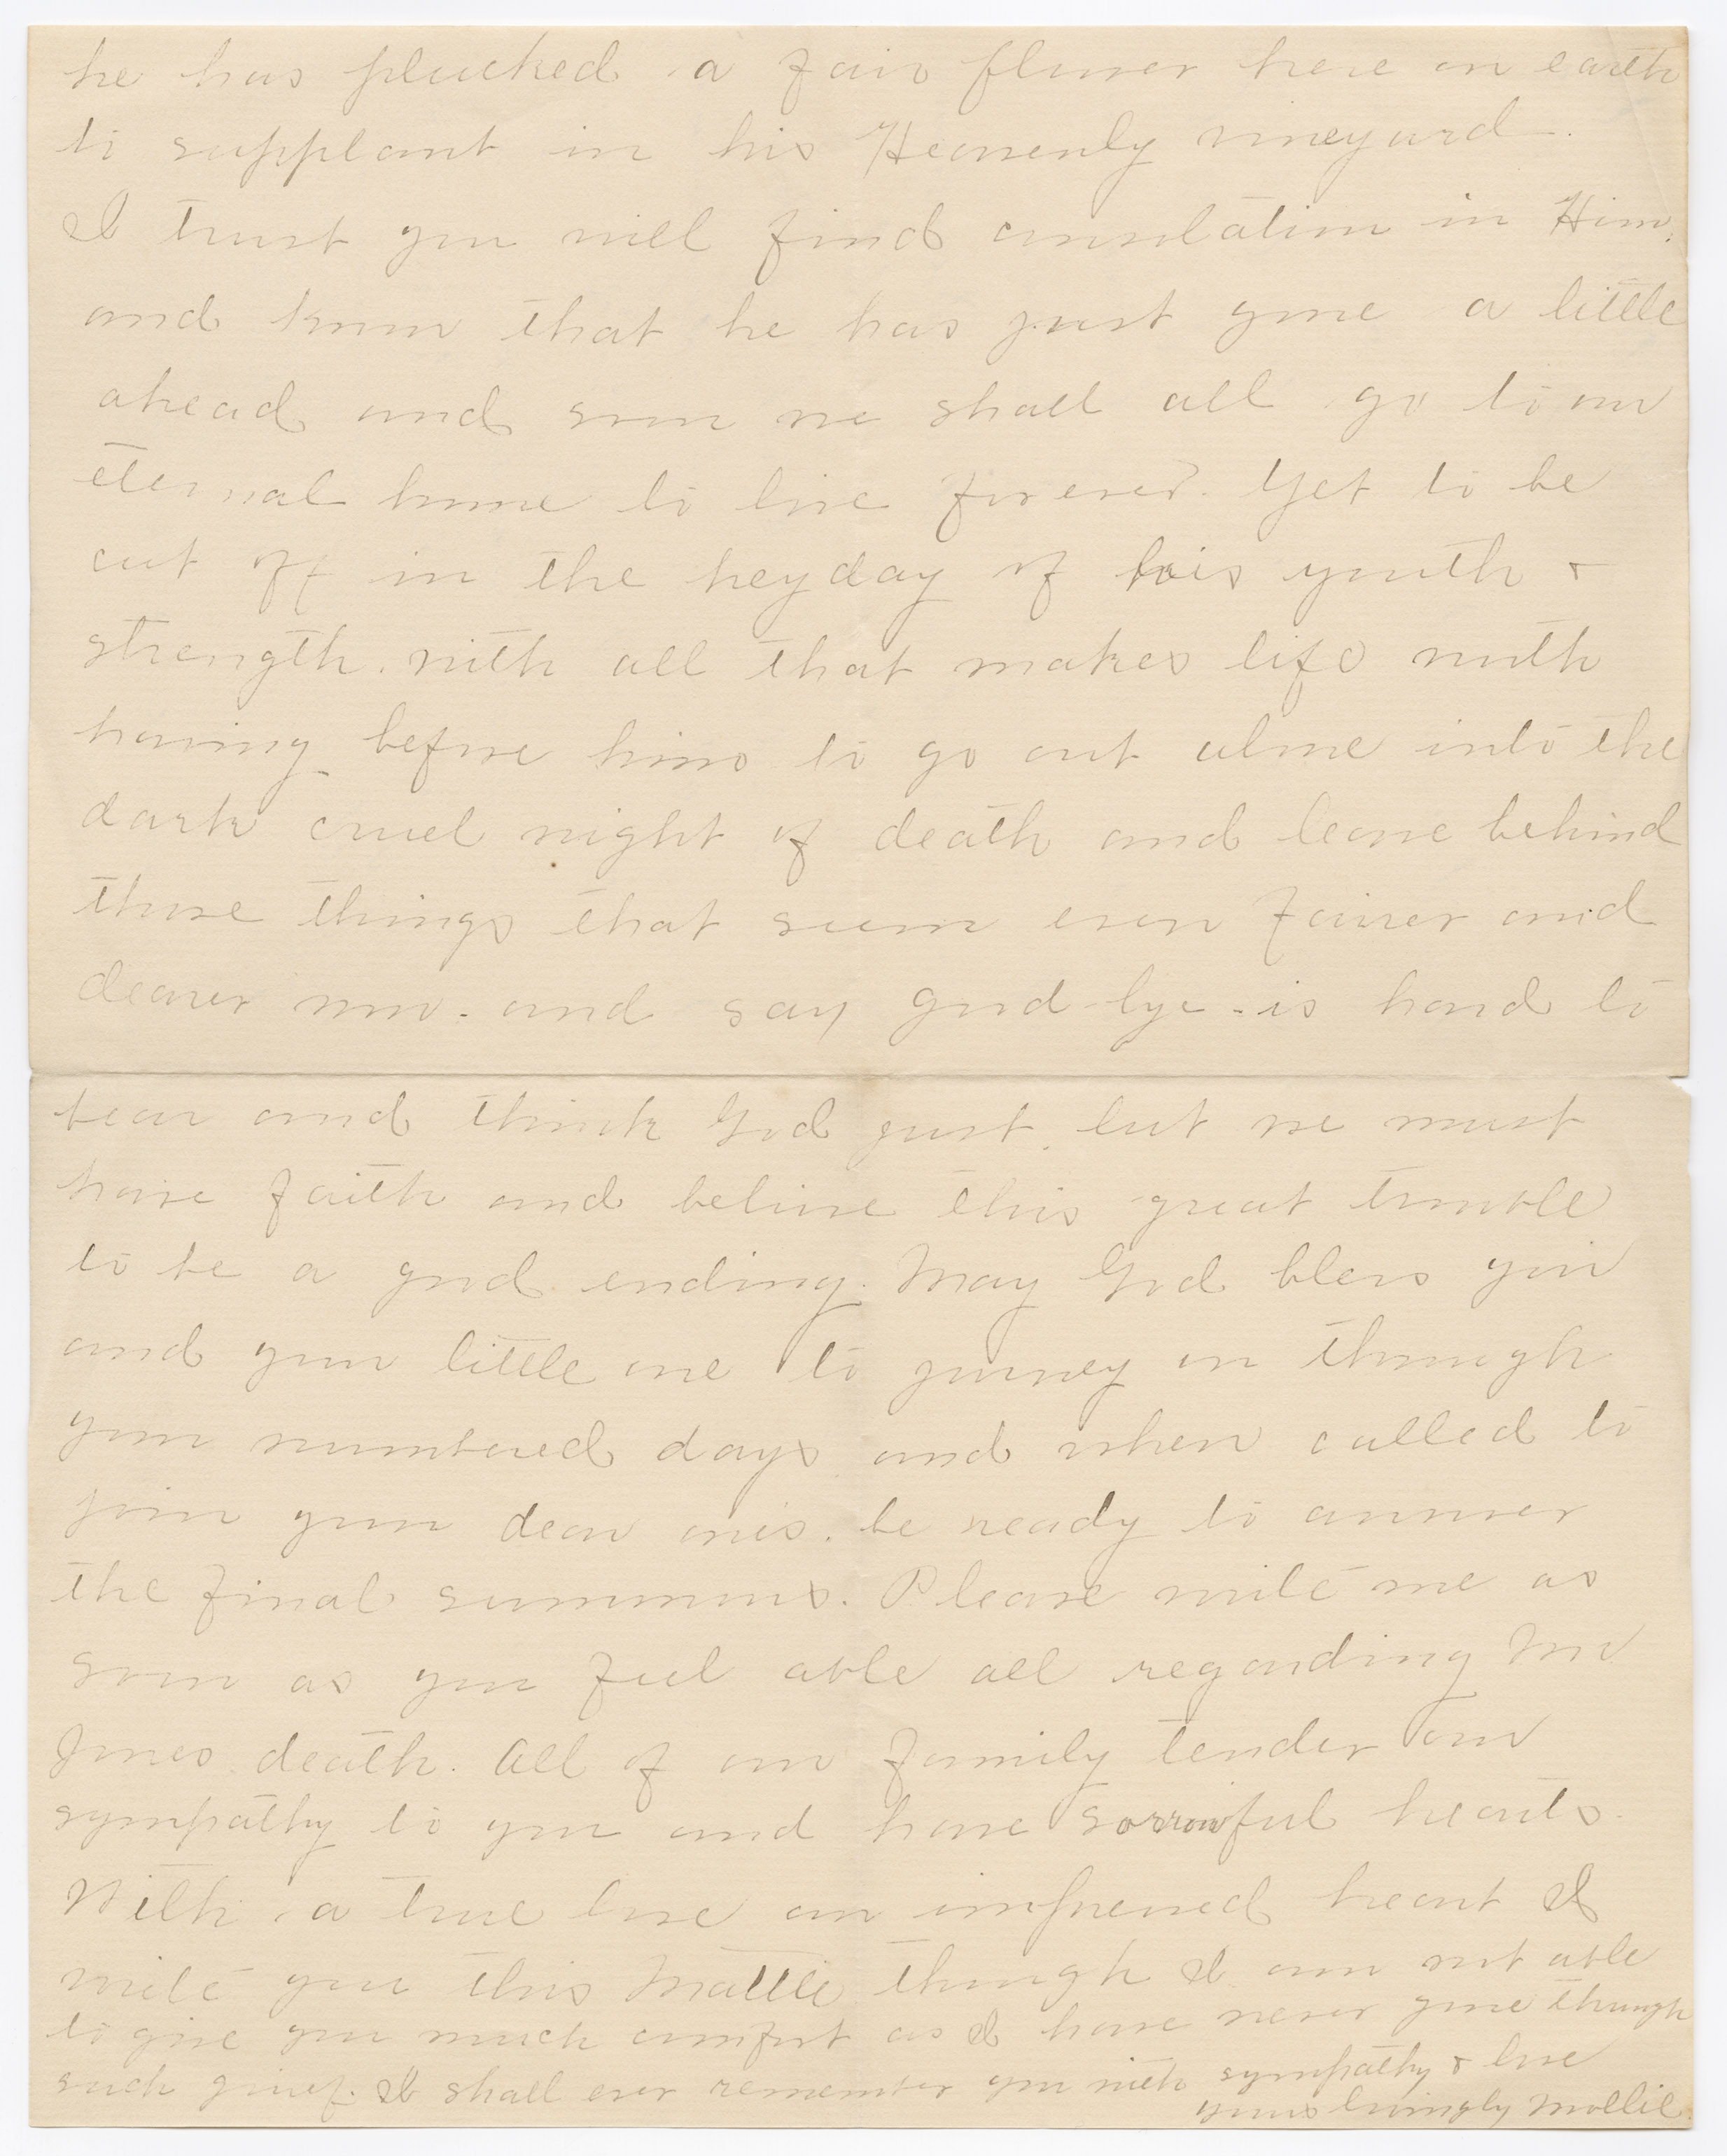 he has plucked a fair flower here on earth
to supplant in his Heavenly vineyard.
I trust you will find consolation in Him,
and know that he has just gone a little
ahead and soon we shall all go to our
eternal home to live forever. Yet to be
cut off in the heyday of his youth &
strength. with all that makes life worth
having before him to go out alone into the
dark cruel night of death and leave behind
those things that seem even fairer and
dearer now. and say good-bye - is hard to
bear and think God just, but we must
have faith and belive this great trouble
to be a good ending. May God bless you
and your little one to journey on through
your numbered days and when called to
join your dear ones. be ready to answer
the final summons. Please write me as
soon as you feel able all regarding Mr
Jones death. All of our family tender our
sympathy to you and have sorrowful hearts.
With a true love an heart I
write you this Mattie though I am not able
to give you much comfort as I have never gone through
such grief. I shall ever remember you with sympathy & love
yours lovingly Mollie